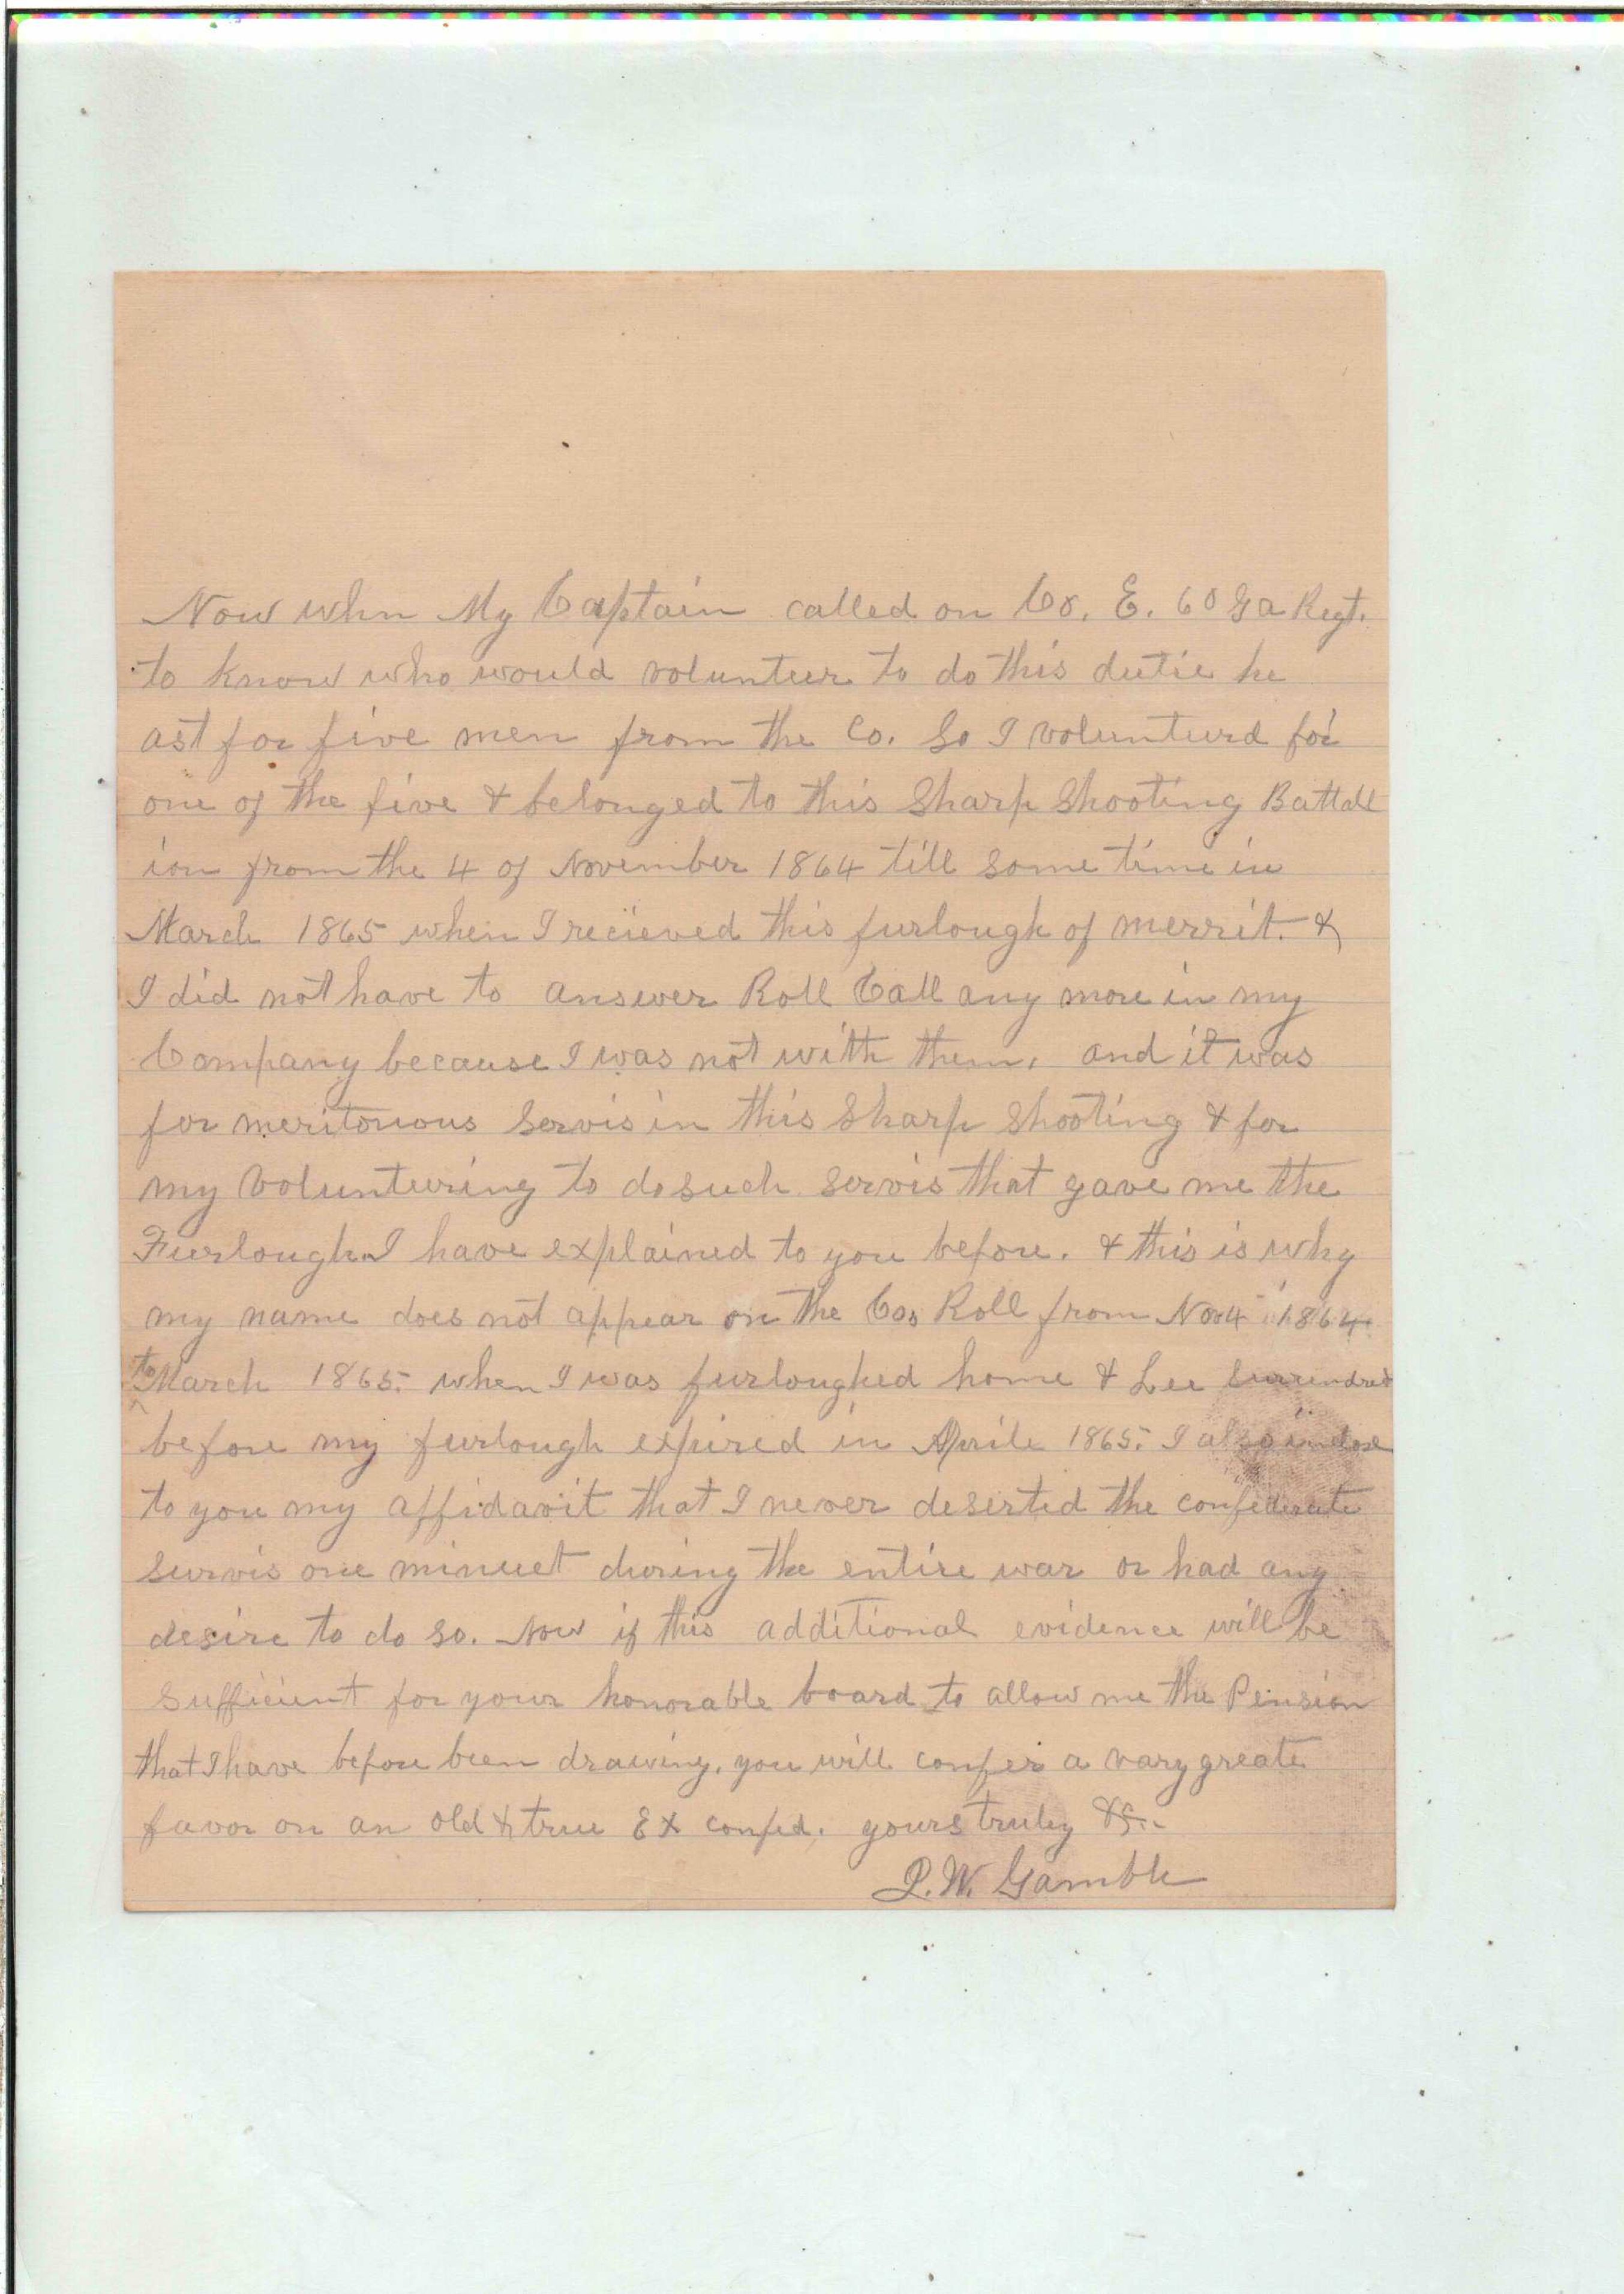 Now when My Captain called on Co. E. 60 Ga Regt.
to know who would volunteer to do this dutie he
ast for five men from the Co. So I volunteerd for
one of the five & belonged to this Sharp Shooting Battall
ion from the 4 of November 1864 till some time in
March 1865 when I recieved this furlough of merrit. &
I did not have to answer Roll Call any more in my
Company because I was not with them, and it was
for meritorious Servis in this Sharp Shooting & for
my volunteering to do such servis that gave me the
Furlough I have explained to you before. & this is why
my name does not appear on the Cos Roll from Nov 4 1864
to March 1865. when I was furloughed home & Lee Surrendred
before my furlough expired in Aprile 1865. I also inclose
to you my affidavit that I never deserted the confederate
survis one minuet during the entire war or had any
desire to do so. Now if this additional evidence will be
sufficient for your honorable board to allow me the Pension
that I have before been drawing, you will confer a vary greate
favor on an old & true Ex confed. yours truly &c.
W. Gamble